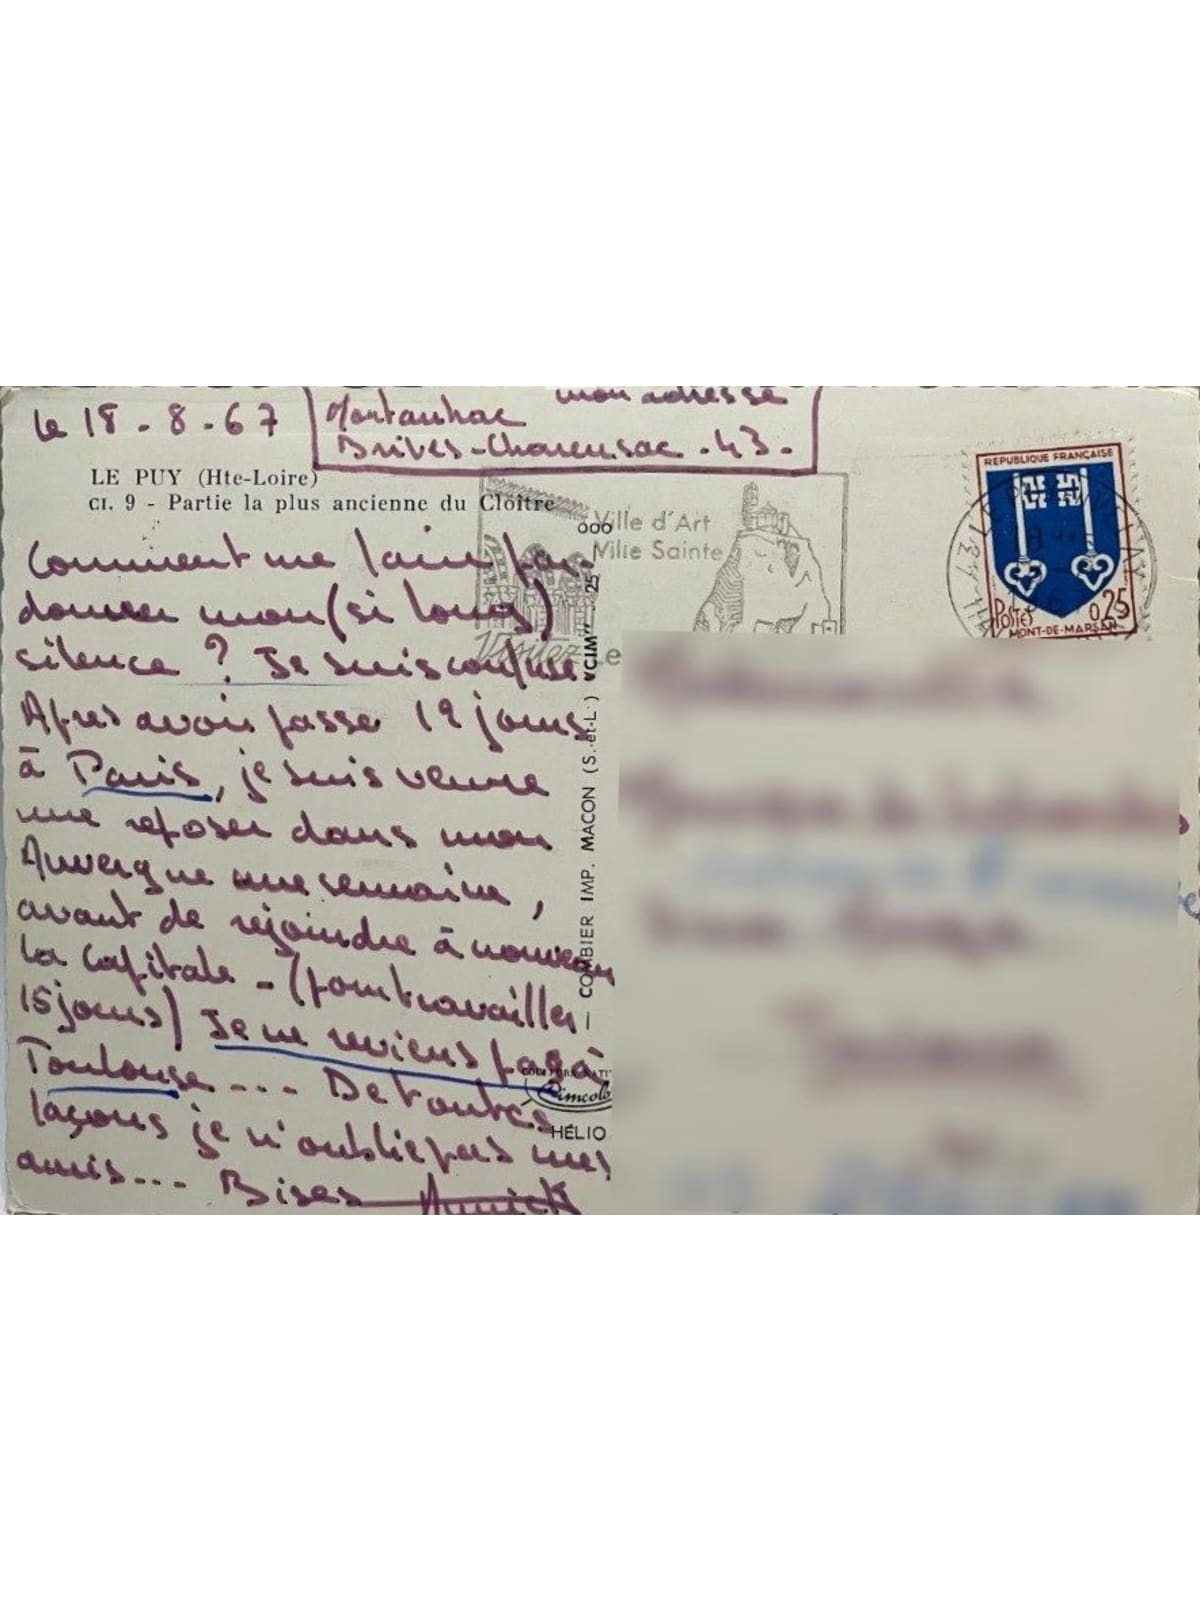 le 18-8-67
mon adresse
Montauhac
Brives-Charensac.43.
LE PUY (Hte-Loire)
CI. 9 - Partie la plus ancienne du Cloître
Ville d'Art
Ville Sainte
Visitez Le
RÉPUBLIQUE FRANÇAISE
POSTES 0,25
MONT-DE-MARSAN
Comment me faire par-
donner mon (si long)
silence ? Je suis confuse
Après avoir passé 12 jours
à Paris, je suis venue
me reposer dans mon
Auvergne une semaine,
avant de rejoindre à nouveau
la capitale - (pour travailler
15 jours) Je ne reviens pas à
Toulouse... De toutes
façons je n'oublie pas mes
amis... Bises Annick
COMBIER IMP. MACON (S.-et-L.) "CIM" 25
Cimcolor
HÉLIO